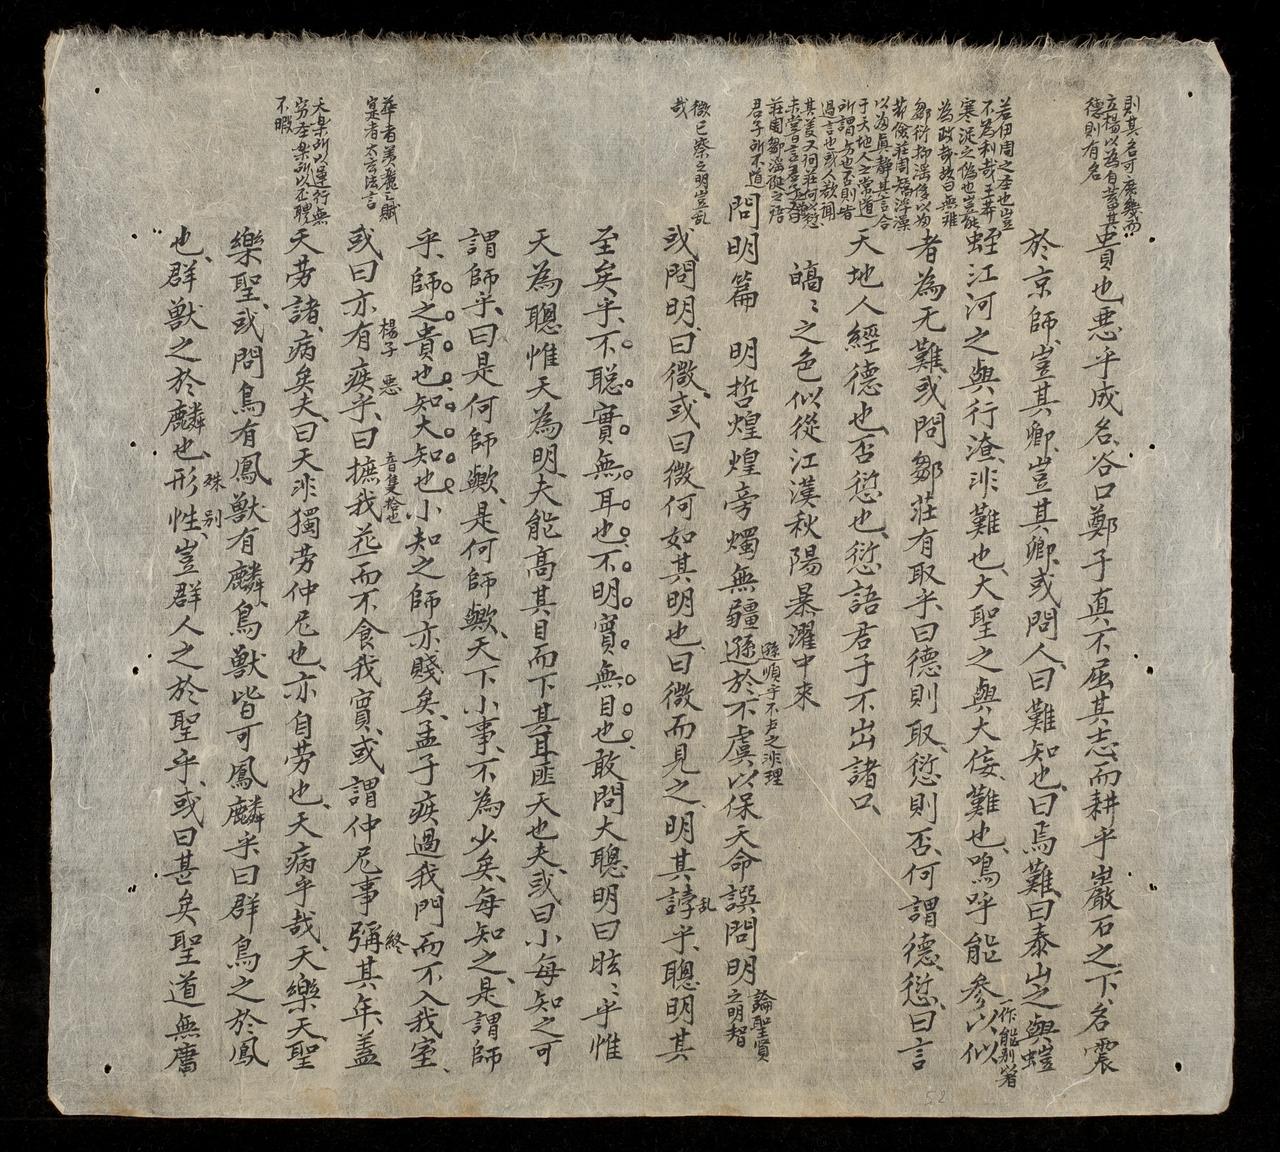 則其名可庶幾而
立楊以為自蓄其
德則有名
貴也惡乎成名谷口鄭子真不屈其志而耕乎巖石之下名震
於京師豈其卿豈其卿或問人曰難知也曰焉難曰泰山之與螘
一作能別
若伊周之聖也豈
不為利哉王莽
寒浞之偽也豈能
為政哉故曰無難
蛭江河之與行潦非難也大聖之與大佞難也嗚呼能參以似
者為无難或問鄒莊有取乎曰德則取愆則否何謂德愆曰言
鄒衍抑滛侈以為
莭儉莊周矯浮澡
以為真靜其言合
于天地人之常道
所謂方也否則皆
過言也或人歎聞
其美又何莊何以愆
莊周鄒滛誕之語
君子所不道
天地人經德也否愆也愆語君子不出諸口
皜〻之色似從江漢秋陽暴濯中來
問明篇　明哲煌煌旁燭無疆遜於不虞以保天命譔問明
遜順乎不虞之非理
論聖賢
之明智
微已察之明豈乱
哉
或問明曰微或曰微何如其明也曰微而見之明其誖乎聰明其
乱
至矣乎不聡實無耳也不明實無目也敢問大聰明曰眩〻乎惟
天為聰惟天為明夫能高其目而下其耳匪天也夫或曰小每知之可
謂師乎曰是何師歟是何師歟天下小事不為少矣每知之是謂師
乎師之貴也知大知也小知之師亦賤矣孟子疾過我門而不入我室
華者美麗之賦
寔者太玄法言
楊子
惡
音隻拾也
或曰亦有疾乎曰摭我花而不食我實或謂仲尼事彌其年蓋
終
天樂所以運行無
窮聖樂所以不聘
不暇
天勞諸病矣夫曰天非獨勞仲尼也亦自勞也天病乎哉天樂天聖
樂聖或問鳥有鳳獸有麟鳥獸皆可鳳麟乎曰群鳥之於鳳
也群獸之於麟也形性豈群人之於聖乎或曰甚矣聖道無庸
殊别
52